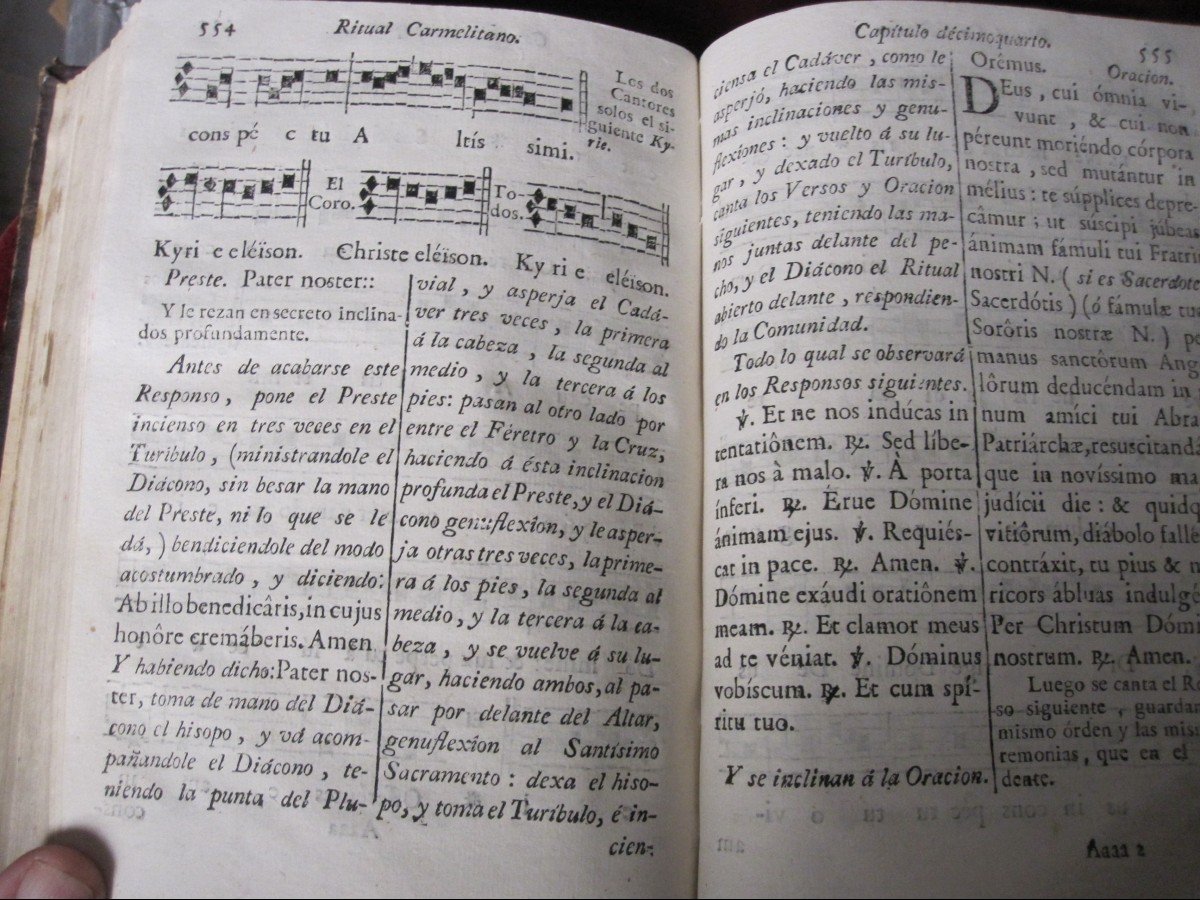 554
Ritual Carmelitano.
Los dos
Cantores
solos el si-
guiente Ky-
rie.
cons pé c tu A ltís simi.
El
Coro.
To
dos.
Kyri e eléïson. Christe eléïson. Ky ri e eléïson.
Preste. Pater noster::
Y le rezan en secreto inclina-
dos profundamente.
Antes de acabarse este
Responso, pone el Preste
incienso en tres veces en el
Turíbulo, (ministrandole el
Diácono, sin besar la mano
del Preste, ni lo que se le
dá,) bendiciendole del modo
acostumbrado, y diciendo:
Ab illo benedicâris, in cujus
honôre cremáberis. Amen
Y habiendo dicho: Pater nos-
ter, toma de mano del Diá-
cono el hisopo, y vá acom-
pañandole el Diácono, te-
niendo la punta del Plu-
vial, y asperja el Cadá-
ver tres veces, la primera
á la cabeza, la segunda al
medio, y la tercera á los
pies: pasan al otro lado por
entre el Féretro y la Cruz,
haciendo á ésta inclinacion
profunda el Preste, y el Diá-
cono genuflexîon, y le asper-
ja otras tres veces, la prime-
ra á los pies, la segunda al
medio, y la tercera á la ca-
beza, y se vuelve á su lu-
gar, haciendo ambos, al pa-
sar por delante del Altar,
genuflexîon al Santísimo
Sacramento: dexa el hiso-
po, y toma el Turíbulo, é in-
cien-
Capítulo décimoquarto.
555
ciensa el Cadáver, como le
asperjó, haciendo las mis-
mas inclinaciones y genu-
flexîones: y vuelto á su lu-
gar, y dexado el Turíbulo,
canta los Versos y Oracion
siguientes, teniendo las ma-
nos juntas delante del pe-
cho, y el Diácono el Ritual
abierto delante, respondien-
do la Comunidad.
Todo lo qual se observará
en los Responsos siguientes.
℣. Et ne nos indúcas in
tentatiônem. ℟. Sed líbe-
ra nos à malo. ℣. À porta
ínferi. ℟. Erue Dómine
ánimam ejus. ℣. Requiés-
cat in pace. ℟. Amen. ℣.
Dómine exáudi oratiônem
meam. ℟. Et clamor meus
ad te véniat. ℣. Dóminus
vobíscum. ℟. Et cum spí-
ritu tuo.
Y se inclinan á la Oracion.
Orémus. Oracion.
DEus, cui ómnia vi-
vunt, & cui non
péreunt moriéndo córpora
nostra, sed mutántur in
mélius: te súpplices depre-
câmur; ut súscipi júbeas
ánimam fámuli tui Fratri
nostri N. (si es Sacerdote
Sacerdótis) (ó fámulæ tuæ
Sorôris nostræ N.) pe
manus sanctôrum Ang
lôrum deducéndam in
num amíci tui Abra
Patriárchæ, resuscitanda
que in novíssimo ma
judícii die: & quidq
vitiôrum, diábolo falle
contráxit, tu pius & m
ricors ábluas indulgé
Per Christum Dómi
nostrum. ℟. Amen.
Luego se canta el Re
so siguiente, guardan
mismo órden y las mis
remonias, que en el
dente.
Aaaa 2